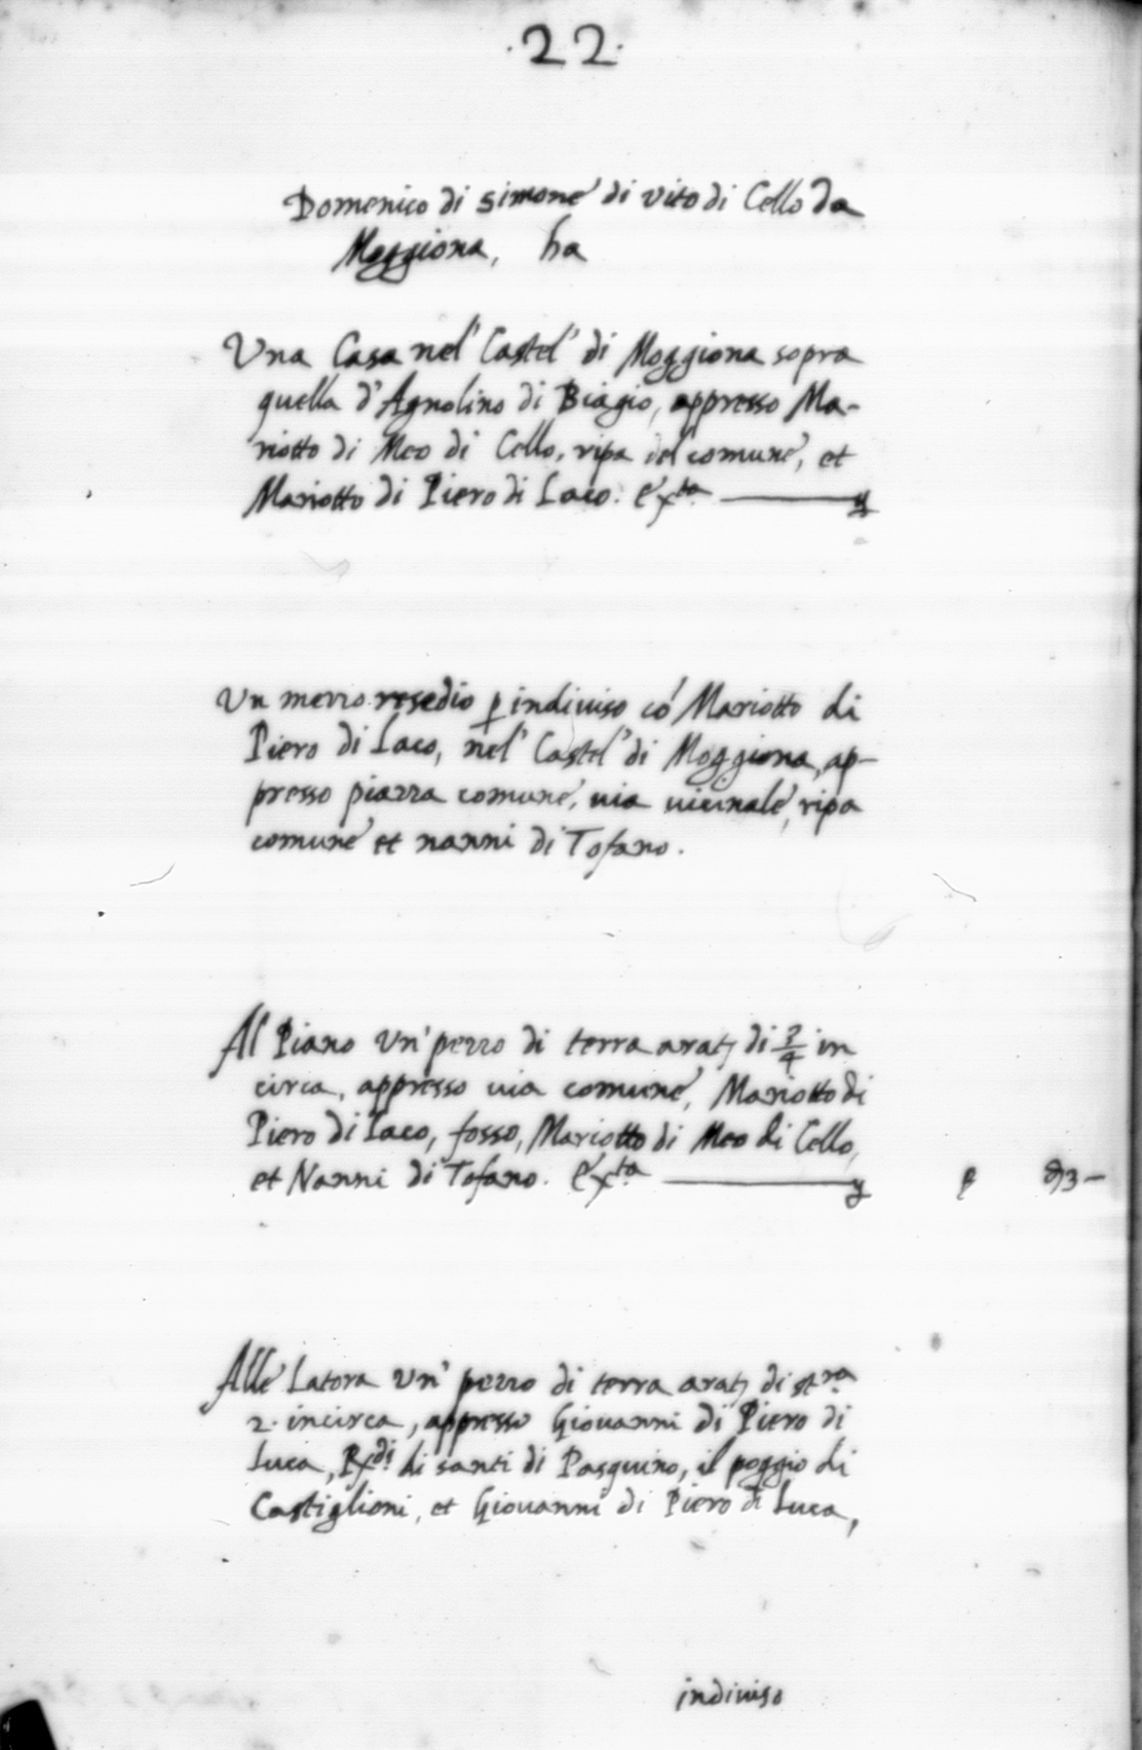 ·22·
Domenico di Simone di Vito di Cello da
Moggiona, ha
Una Casa nel Castel di Moggiona sopra
quella d'Agnolino di Biagio, appresso Ma-
riotto di Meo di Cello, ripa del comune, et
Mariotto di Piero di Iaco.
Un mezzo resedio p indiviso co' Mariotto di
Piero di Iaco, nel Castel di Moggiona, ap-
presso piazza comune, via vicinale, ripa
comune et nanni di Tofano.
Al Piano Un' pezzo di terra arat, di 3/4 in
circa, appresso via comune, Mariotto di
Piero di Iaco, fosso, Mariotto di Meo di Cello,
et Nanni di Tofano.
Alle Latora Un' pezzo di terra arat, di st.ra
2. incirca, appresso Giovanni di Piero di
Luca, Rdi di santi di Pasquino, il poggio di
Castiglioni, et Giovanni di Piero di Luca,
indiviso